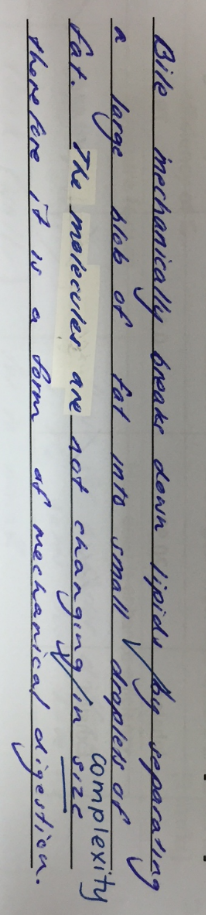 Bile mechanically breaks down lipids by separating
a large blob of fat into small droplets of
fat. The molecules are not changing in size
complexity
therefore it is a form of mechanical digestion.